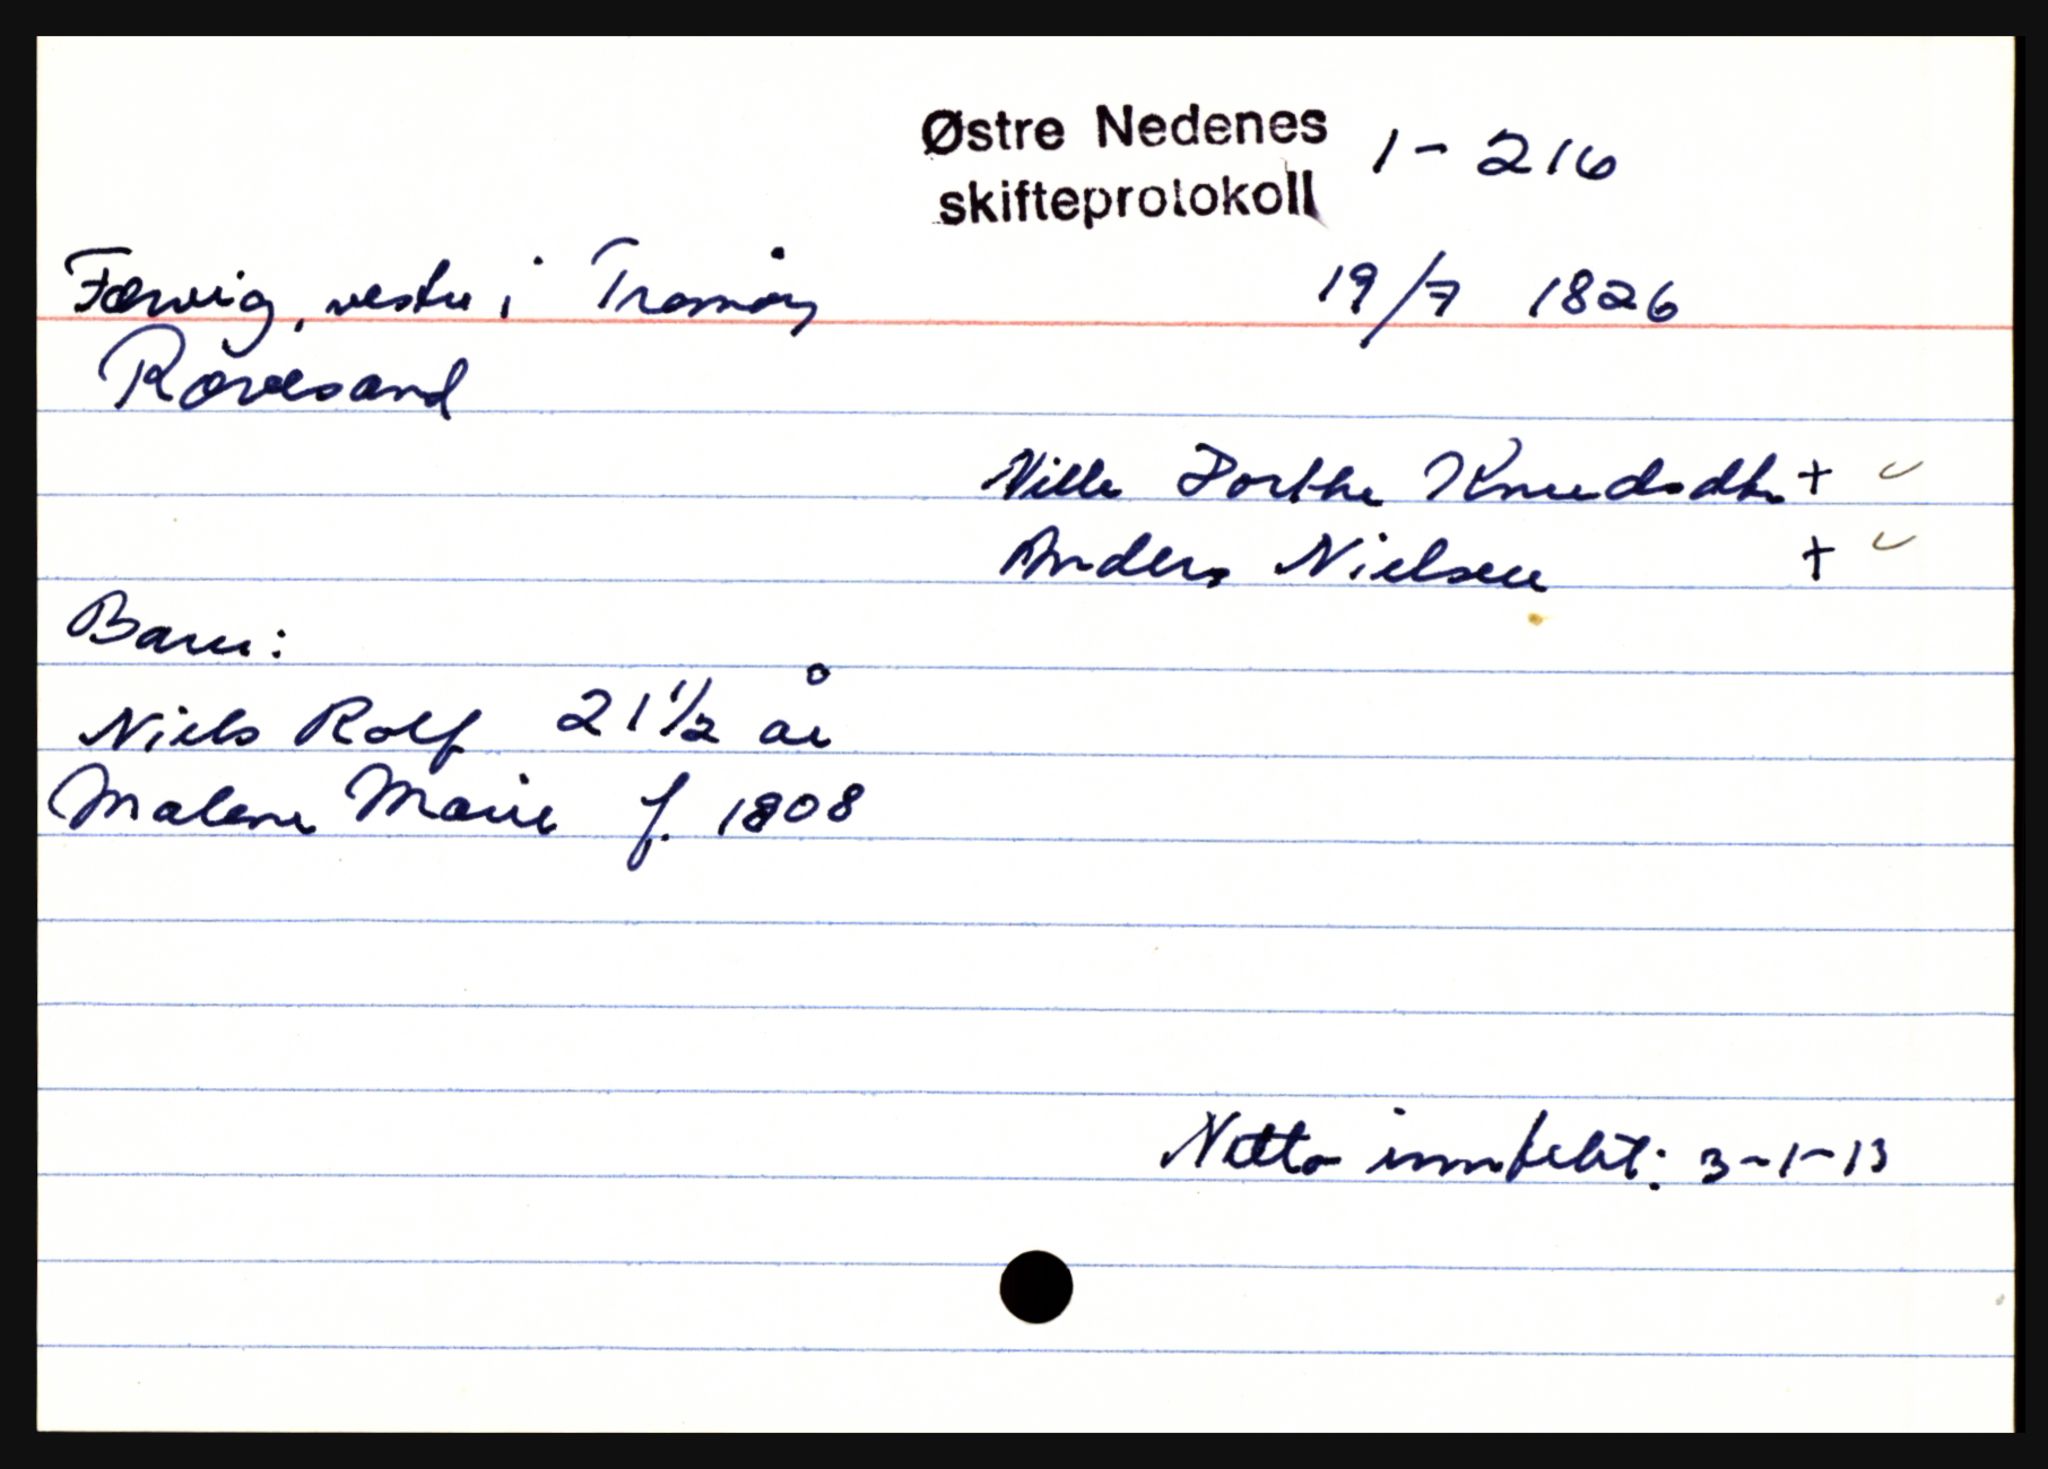 Østre Nedenes 1-216
skifteprotokoll
Færvig, vestre i Tromøy 19/7 1826
Rævesand
Nille Dorthe Knudsdtr. +
Anders Nielsen +
Barn:
Niels Rolf 21 1/2 år
Malene Marie f. 1808
Netto inntekt: 3-1-13